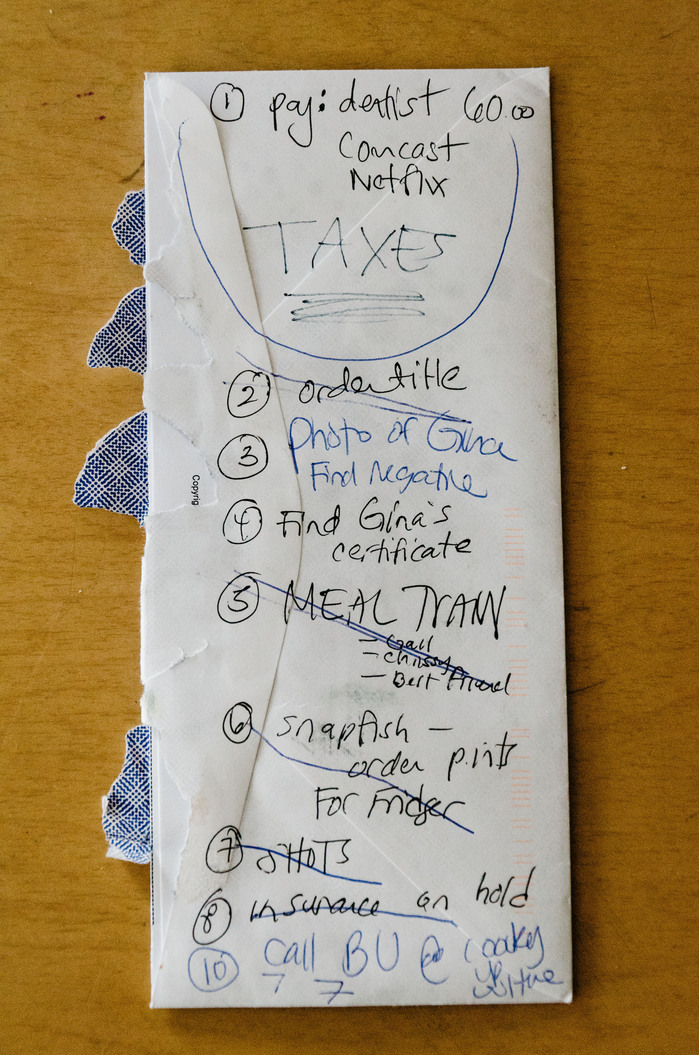 ① pay: dentist 60.00
Comcast
Netflix
TAXES
② order title
③ photo of Gina
Find negative
④ Find Gina's
certificate
Copyrig
⑤ MEAL TRAIN
- Gail
- Chrissy
- Best Friend
⑥ Snapfish -
order prints
For
⑦ SHOTS
⑧ insurance on hold
⑩ Call BU @